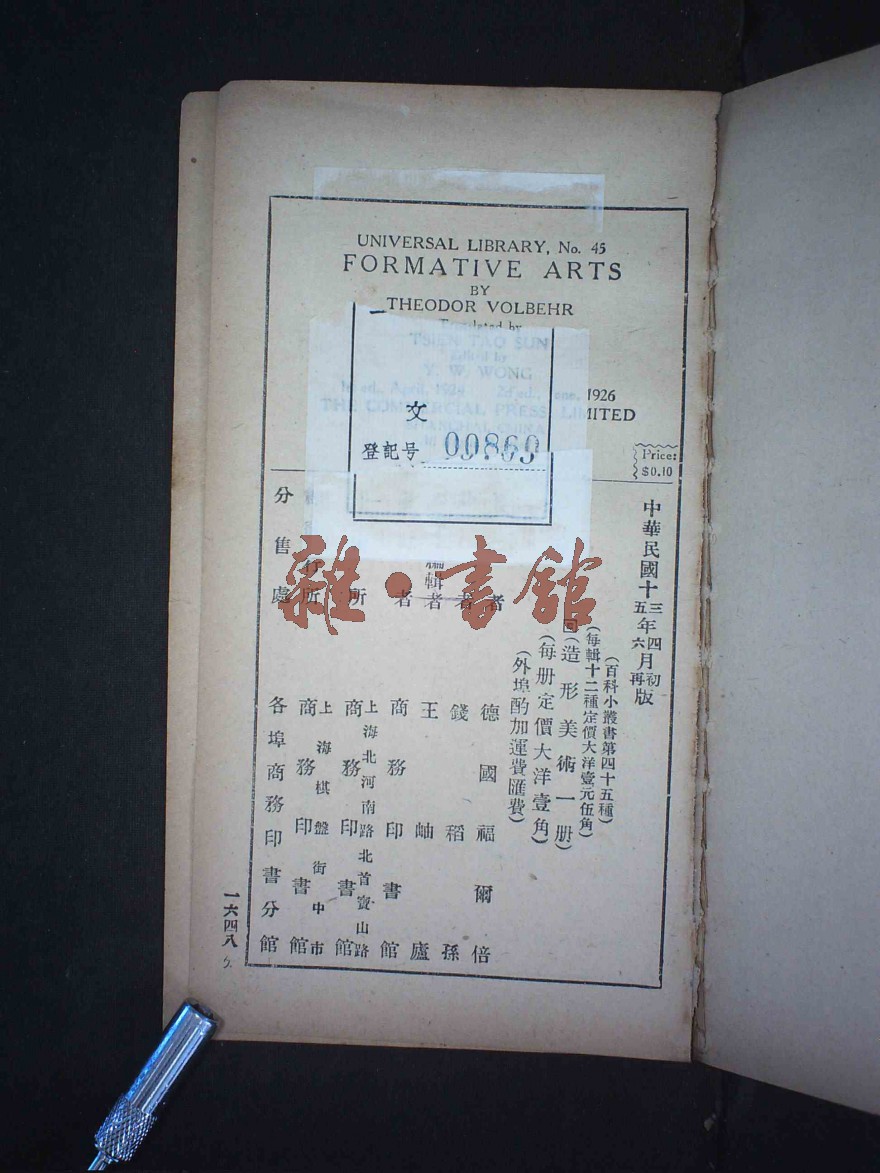 UNIVERSAL LIBRARY, No. 45
FORMATIVE ARTS
BY
THEODOR VOLBEHR
Translated by
TSIEN TAO SUN
Edited by
Y. W. WONG
1st ed., April, 1924 2d ed., June, 1926
THE COMMERCIAL PRESS, LIMITED
SHANGHAI, CHINA
文
登記号 00869
Price:
$0.10
中華民國十三年四月初版
五六再
(百科小叢書第四十五種)
(每輯十二種定價大洋壹元伍角)
回(造形美術一册)
(每册定價大洋壹角)
(外埠酌加運費匯費)
者 德國福爾倍
者 錢稻孫
編輯者 王岫廬
者 商務印書館
上海北河南路北首寶山路
所 商務印書館
上海棋盤街中市
行所 商務印書館
分售處 各埠商務印書分館
一六四八
雜·書館